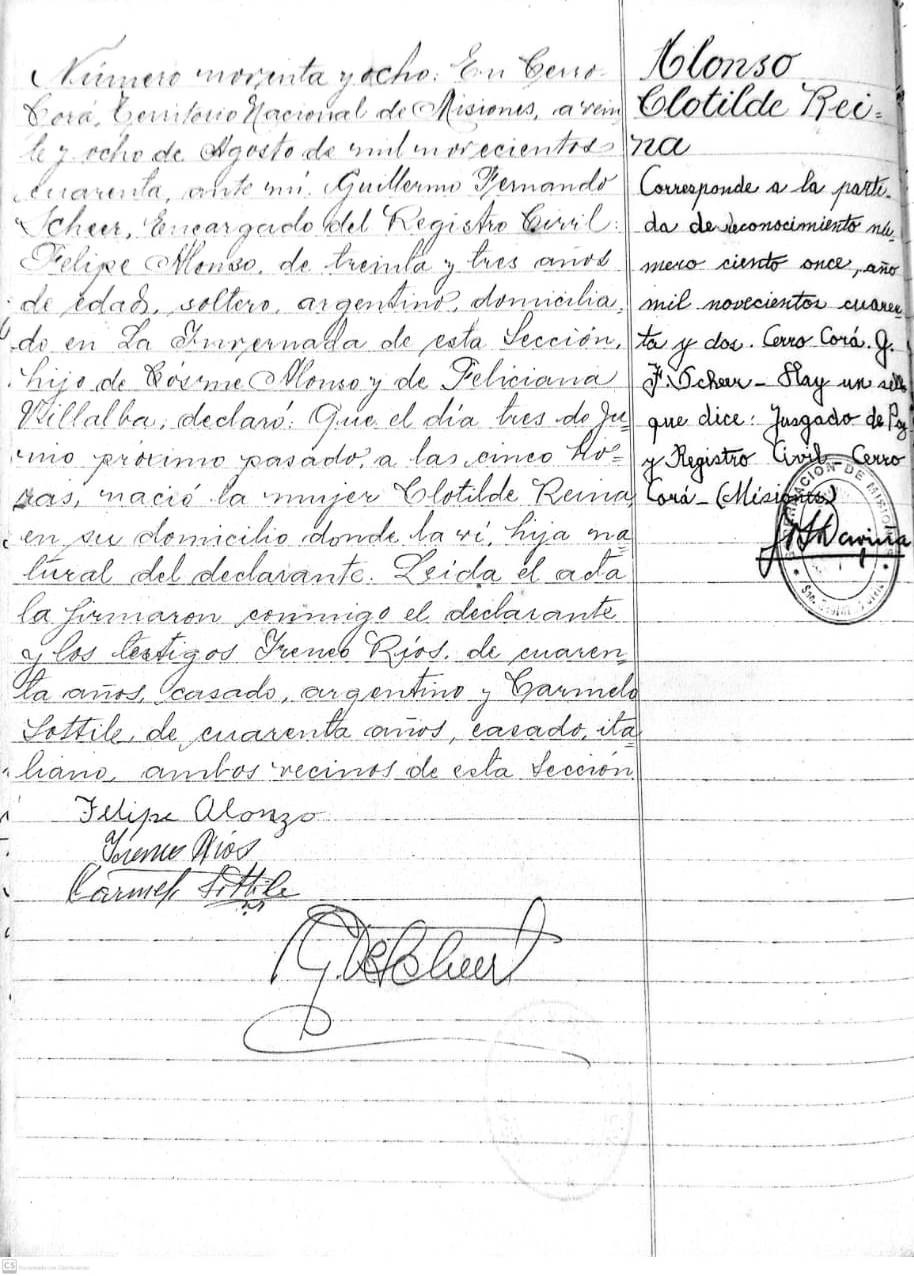 Número noventa y ocho: En Cerro
Corá, Territorio Nacional de Misiones, a vein
te y ocho de Agosto de mil novecientos
cuarenta, ante mí. Guillermo Fernando
Scheer, Encargado del Registro Civil:
Felipe Alonso, de treinta y tres años
de edad, soltero, argentino, domicilia-
do en La Invernada de esta Sección,
hijo de Cósme Alonso y de Feliciana
Villalba; declaró: Que el día tres de Ju=
nio próximo pasado, a las cinco ho=
ras, nació la mujer Clotilde Reina,
en su domicilio donde la ví, hija na=
tural del declarante. Leida el acta
la firmaron conmigo el declarante
y los testigos Ireneo Ríos, de cuaren=
ta años, casado, argentino y Carmelo
Sottile, de cuarenta años, casado, ita=
liano, ambos vecinos de esta Sección.
Felipe Alonzo
Ireneo Ríos
Carmelo Sottile
G. F. Scheer
Alonso
Clotilde Rei=
na
Corresponde a la parti-
da de reconocimiento nú-
mero ciento once, año
mil novecientos cuaren-
ta y dos. Cerro Corá. G.
F. Scheer - Hay un sello
que dice: Juzgado de Paz
y Registro Civil Cerro
Corá - (Misiones)
GOBERNACION DE MISIONES
CS